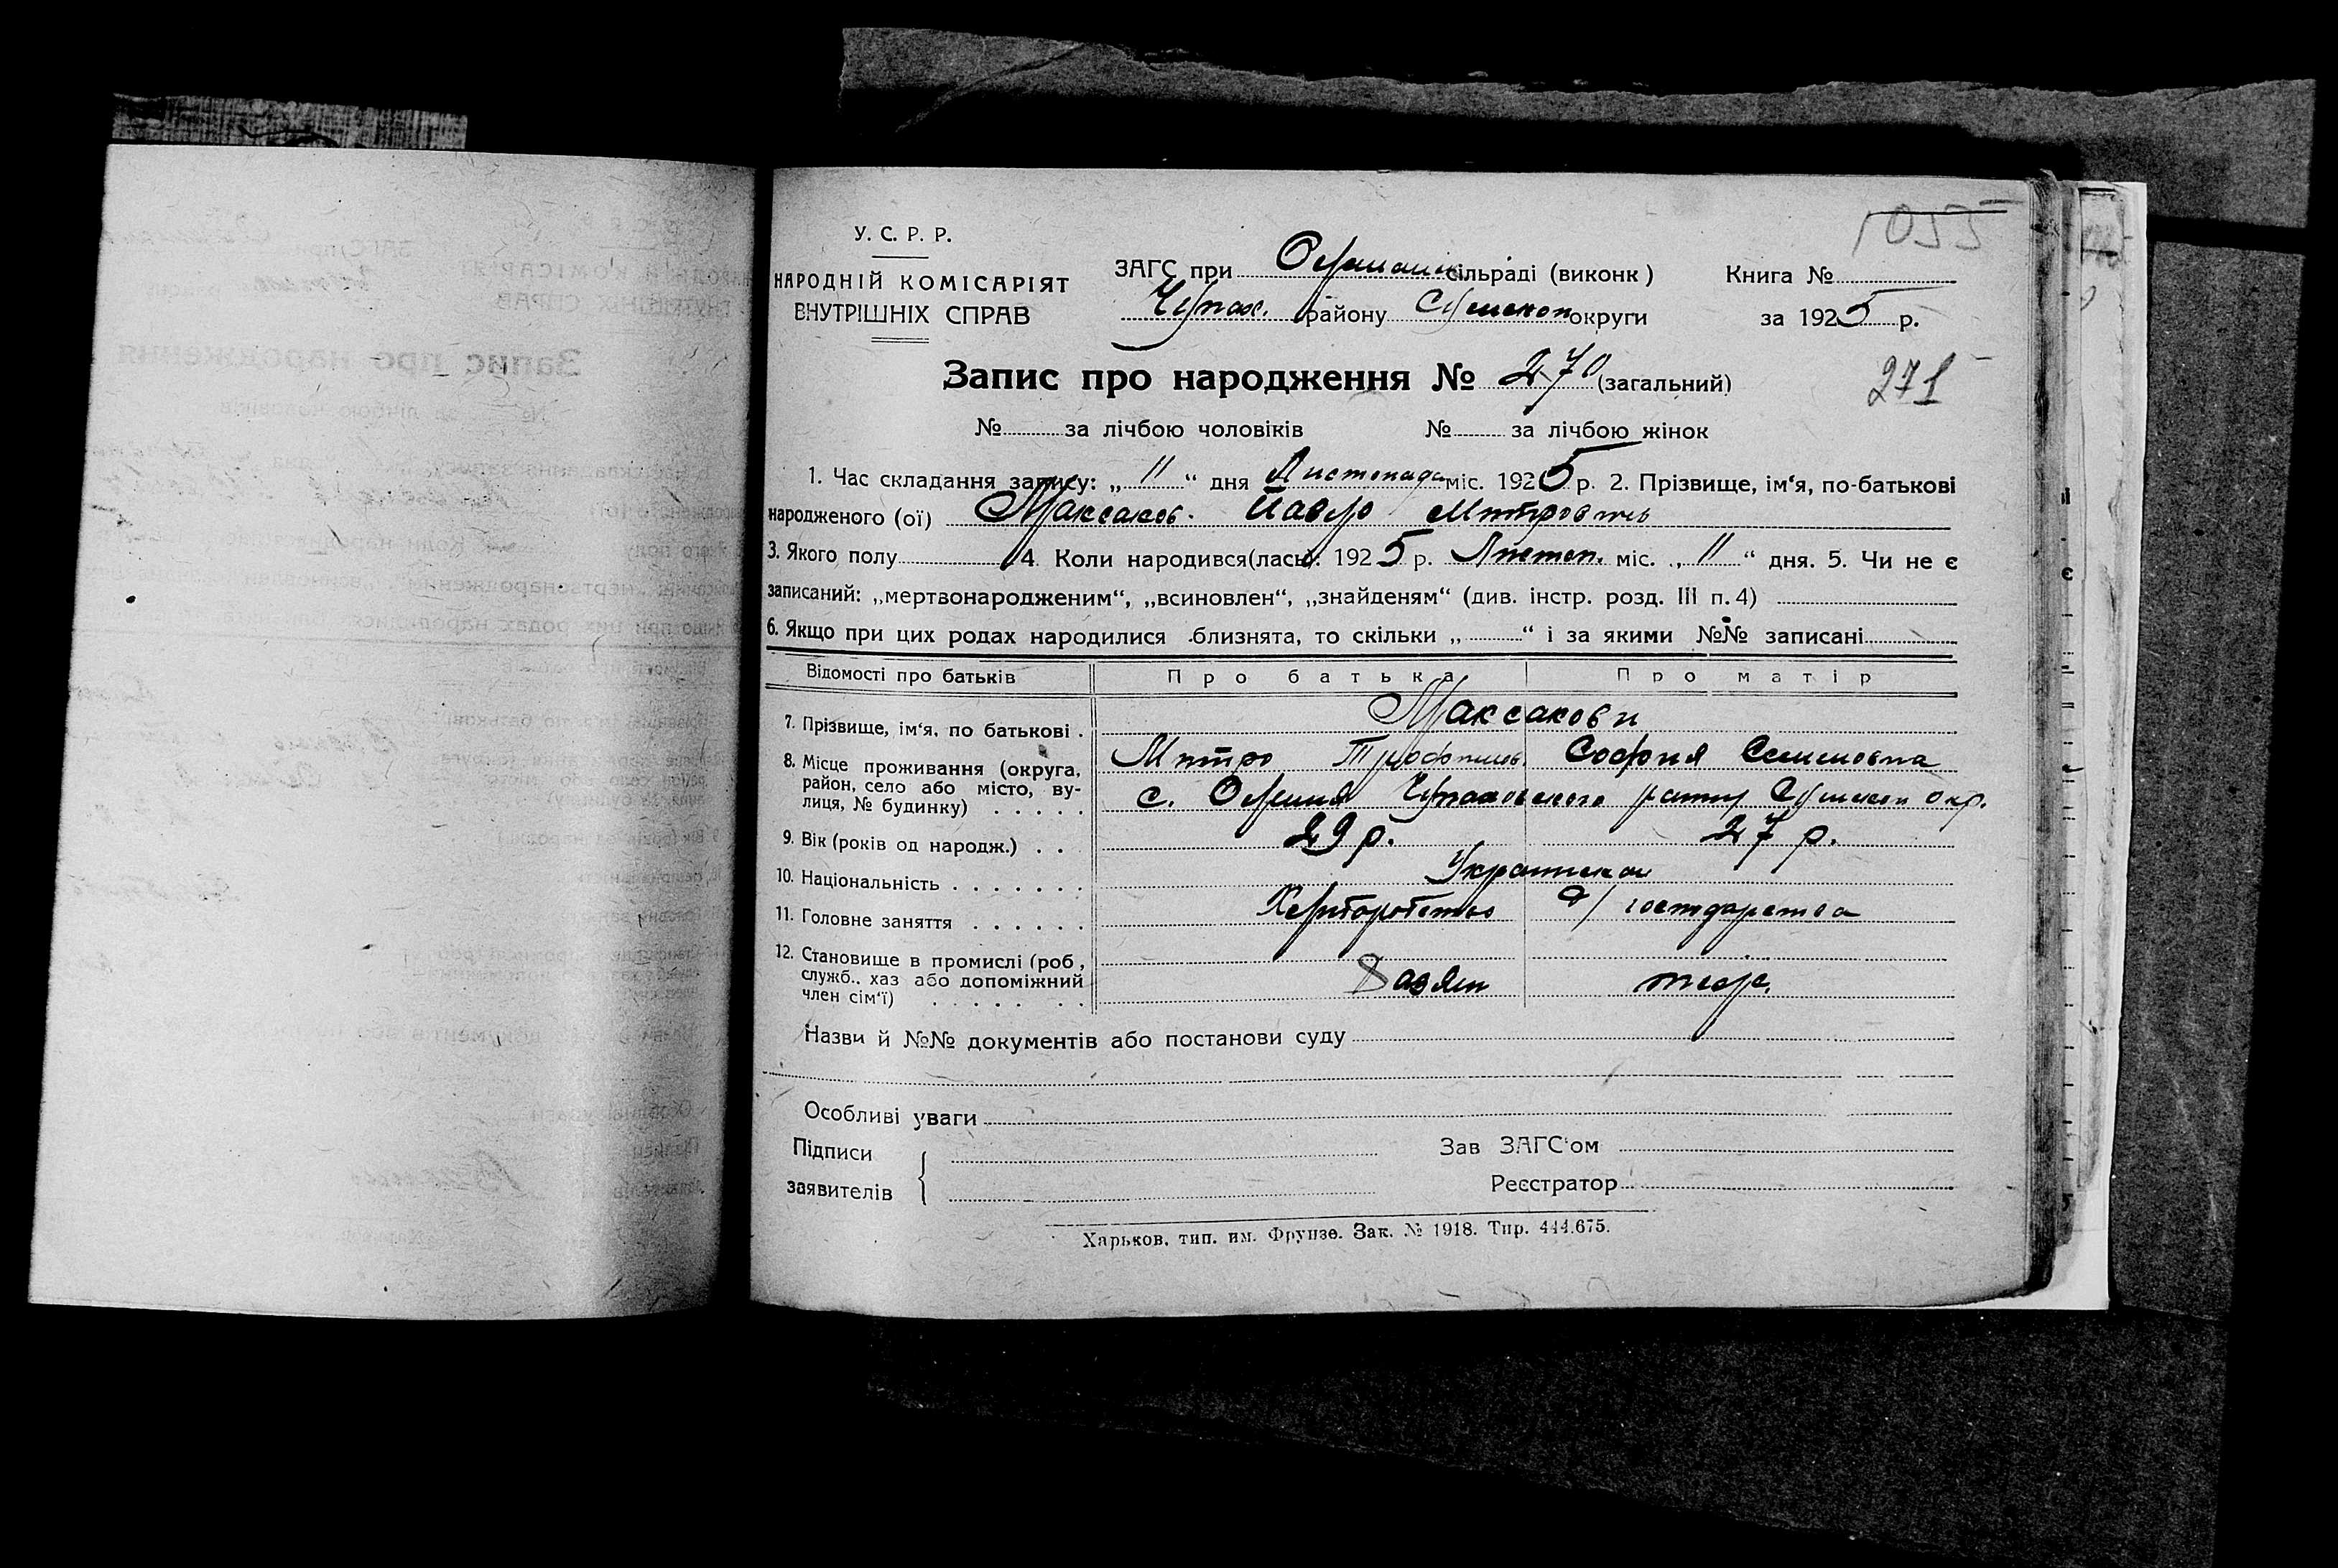 1055
У. С. Р. Р.
НАРОДНІЙ КОМІСАРІЯТ
ВНУТРІШНІХ СПРАВ
ЗАГС при сільраді (виконк)
Чупах. району Сумской округи
Книга №
за 1925 р.
Запис про народження № 270 (загальний)
271
№ за лічбою чоловіків № за лічбою жінок
1. Час складання запису: „ 11 “ дня Листопада міс. 1925 р. 2. Прізвище, ім‘я, по-батькові
народженого (ої) Максаков Павло Митрович
3. Якого полу 4. Коли народився(лась): 1925 р. Листоп. міс. „ 11 “ дня. 5. Чи не є
записаний: „мертвонародженим“, „всиновлен“, „знайденям“ (див. інстр. розд. III п. 4)
6. Якщо при цих родах народилися близнята, то скільки „ “ і за якими №№ записані
Відомості про батьків Про батька Про матір
7. Прізвище, ім‘я, по батькові . Максакови
Митро Трофимов. София Семеновна
8. Місце проживання (округа,
район, село або місто, ву-
лиця, № будинку) . . . . . с. Чупаховского району Сумской окр.
9. Вік (років од народж.) . . 29 р. 27 р.
10. Національність . . . . . . . Украинская
11. Головне заняття . . . . . . Хліборобство д/ господарства
12. Становище в промислі (роб.,
служб., хаз або допоміжний
член сім‘ї) . . . . . . . .
Назви й №№ документів або постанови суду
Особливі уваги
Підписи
заявителів
Зав ЗАГС‘ом
Реєстратор
Харьков, тип. им. Фрунзе. Зак. № 1918. Тир. 444.675.